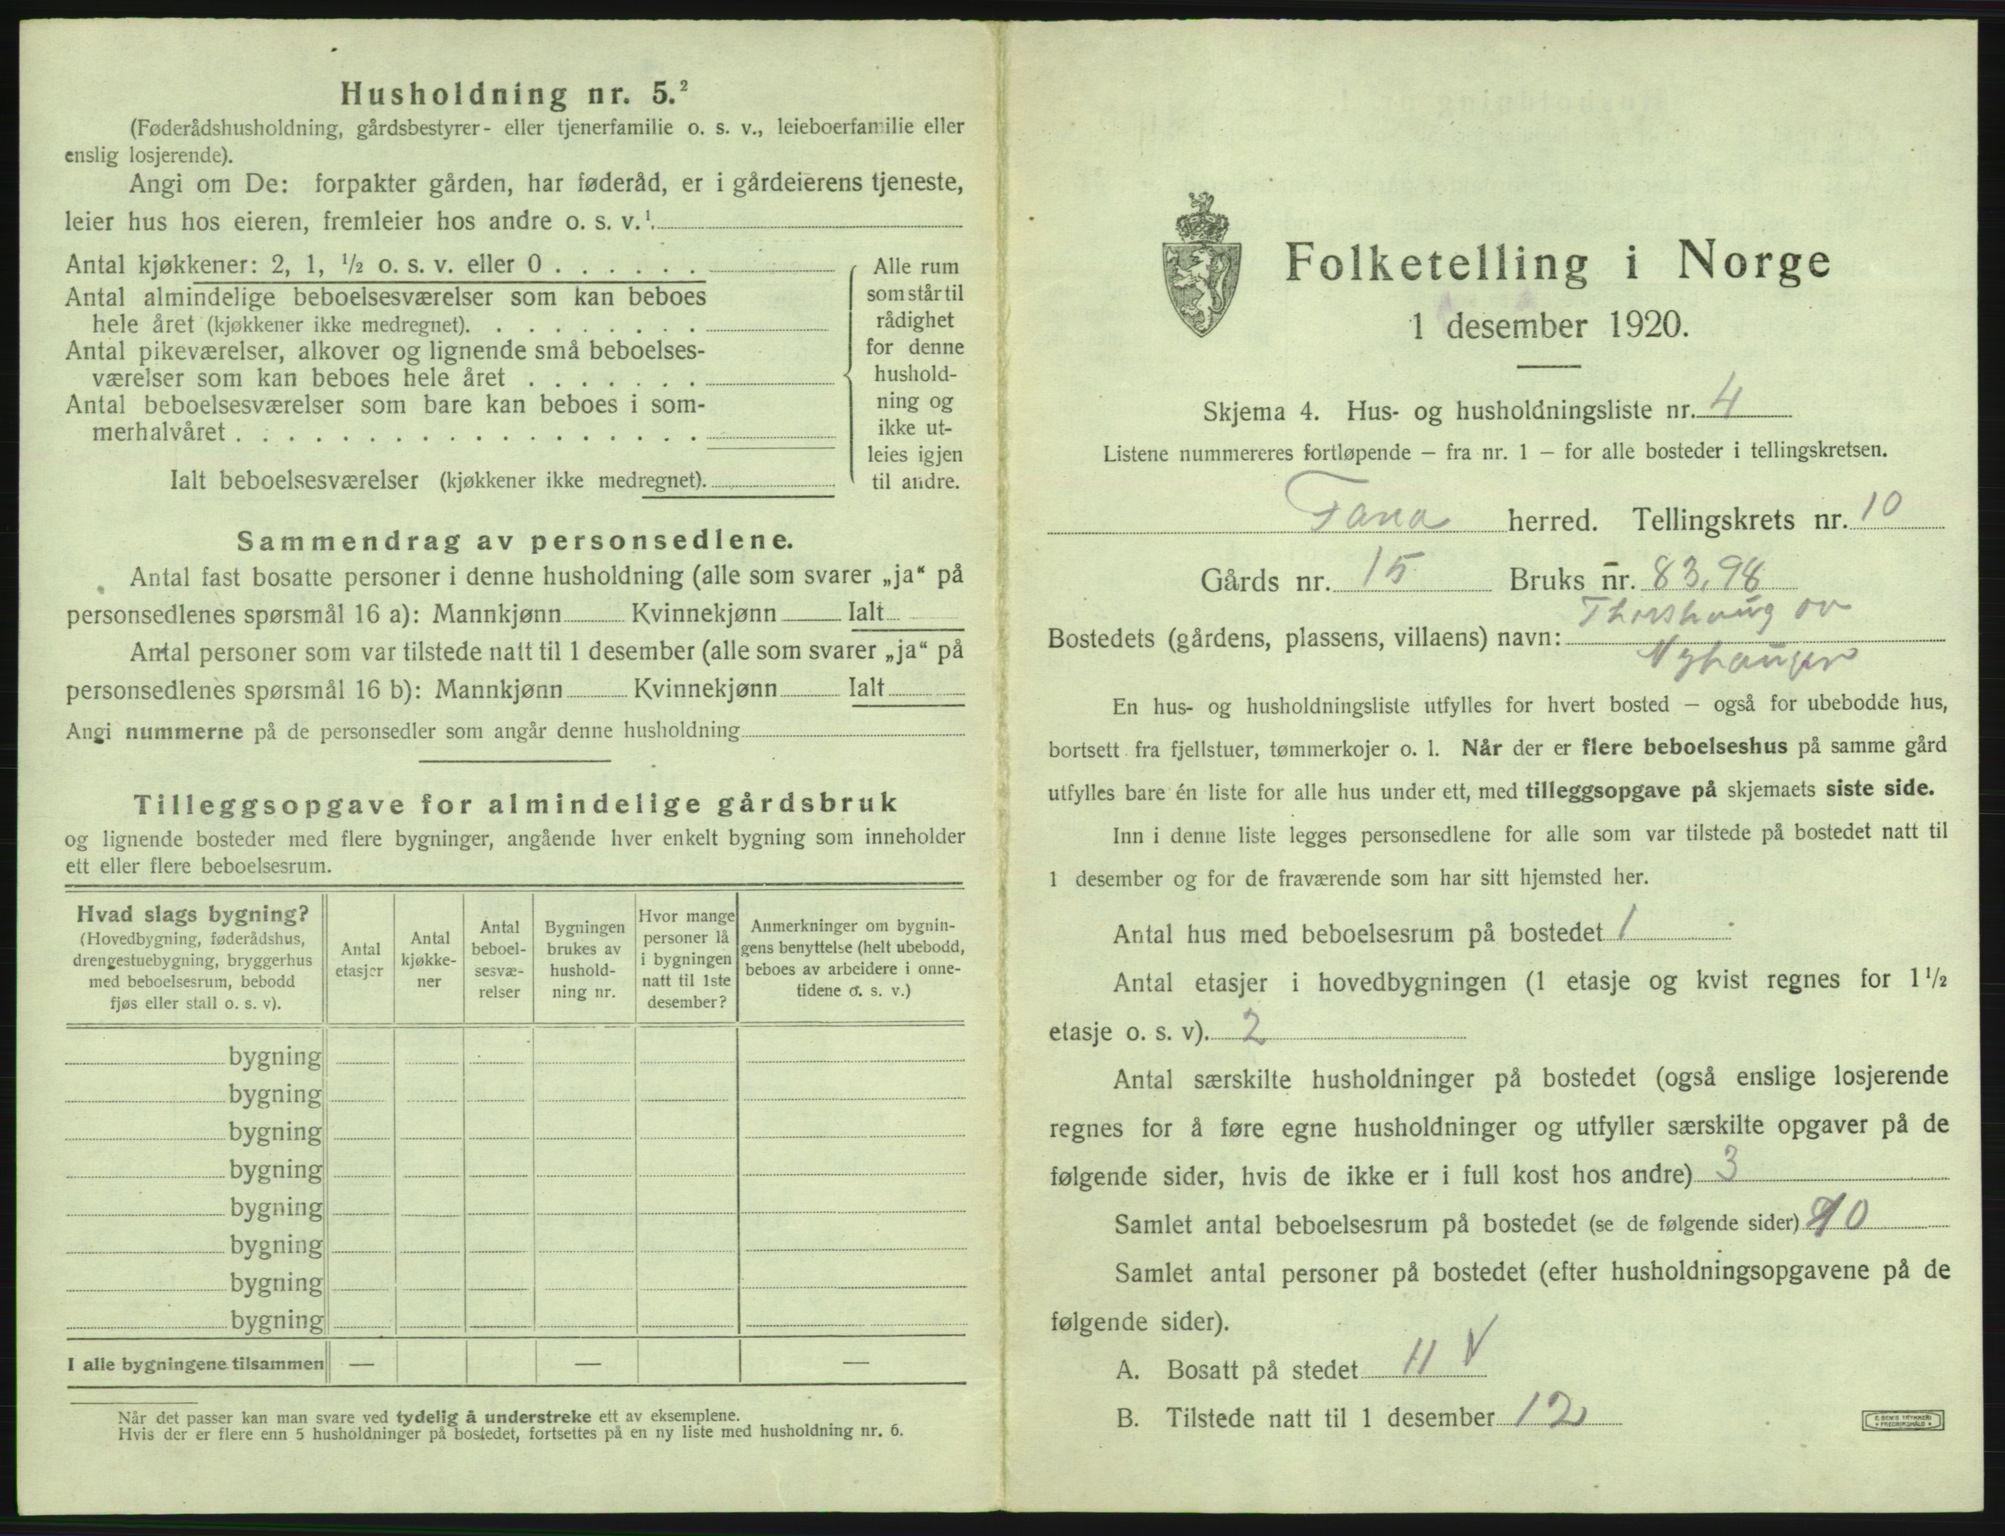 Husholdning nr. 5.²
(Føderådshusholdning, gårdsbestyrer- eller tjenerfamilie o. s. v., leieboerfamilie eller
enslig losjerende).
Angi om De: forpakter gården, har føderåd, er i gårdeierens tjeneste,
leier hus hos eieren, fremleier hos andre o. s. v.¹
Antal kjøkkener: 2, 1, ½ o. s. v. eller 0 . . . . . .
Antal almindelige beboelsesværelser som kan beboes
hele året (kjøkkener ikke medregnet). . . . . . . . .
Antal pikeværelser, alkover og lignende små beboelses-
værelser som kan beboes hele året . . . . . . .
Antal beboelsesværelser som bare kan beboes i som-
merhalvåret . . . . . . . . . . . . . . . . . .
Ialt beboelsesværelser (kjøkkener ikke medregnet).
Alle rum
som står til
rådighet
for denne
hushold-
ning og
ikke ut-
leies igjen
til andre.
Sammendrag av personsedlene.
Antal fast bosatte personer i denne husholdning (alle som svarer „ja“ på
personsedlenes spørsmål 16 a): Mannkjønn Kvinnekjønn Ialt
Antal personer som var tilstede natt til 1 desember (alle som svarer „ja“ på
personsedlenes spørsmål 16 b): Mannkjønn Kvinnekjønn Ialt
Angi nummerne på de personsedler som angår denne husholdning
Tilleggsopgave for almindelige gårdsbruk
og lignende bosteder med flere bygninger, angående hver enkelt bygning som inneholder
ett eller flere beboelsesrum.
Hvad slags bygning?
(Hovedbygning, føderådshus,
drengestuebygning, bryggerhus
med beboelsesrum, bebodd
fjøs eller stall o. s. v).
Antal
etasjer
Antal
kjøkke-
ner
Antal
beboel-
sesvæ-
relser
Bygningen
brukes av
hushold-
ning nr.
Hvor mange
personer lå
i bygningen
natt til 1ste
desember?
Anmerkninger om bygnin-
gens benyttelse (helt ubebodd,
beboes av arbeidere i onne-
tidene o. s. v.)
bygning
bygning
bygning
bygning
bygning
bygning
bygning
bygning
I alle bygningene tilsammen — — —
Når det passer kan man svare ved tydelig å understreke ett av eksemplene.
Hvis der er flere enn 5 husholdninger på bostedet, fortsettes på en ny liste med husholdning nr. 6.
Folketelling i Norge
1 desember 1920.
Skjema 4. Hus- og husholdningsliste nr. 4
Listene nummereres fortløpende – fra nr. 1 – for alle bosteder i tellingskretsen.
Fana herred. Tellingskrets nr. 10
Gårds nr. 15 Bruks nr. 83,98
Thorshaug ov
Bostedets (gårdens, plassens, villaens) navn:
Nyhaugen
En hus- og husholdningsliste utfylles for hvert bosted – også for ubebodde hus,
bortsett fra fjellstuer, tømmerkojer o. l. Når der er flere beboelseshus på samme gård
utfylles bare én liste for alle hus under ett, med tilleggsopgave på skjemaets siste side.
Inn i denne liste legges personsedlene for alle som var tilstede på bostedet natt til
1 desember og for de fraværende som har sitt hjemsted her.
Antal hus med beboelsesrum på bostedet 1
Antal etasjer i hovedbygningen (1 etasje og kvist regnes for 1½
etasje o. s. v). 2
Antal særskilte husholdninger på bostedet (også enslige losjerende
regnes for å føre egne husholdninger og utfyller særskilte opgaver på de
følgende sider, hvis de ikke er i full kost hos andre) 3
Samlet antal beboelsesrum på bostedet (se de følgende sider) 10
Samlet antal personer på bostedet (efter husholdningsopgavene på de
følgende sider).
A. Bosatt på stedet 11 V
B. Tilstede natt til 1 desember 12